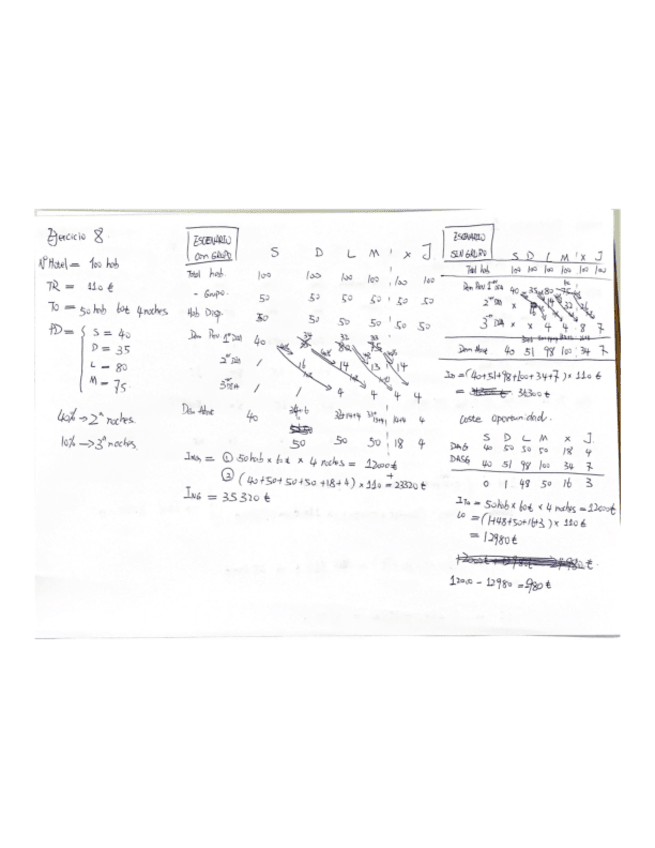 Ejercicio 8
Nº Hotel = 100 hab
TR = 110 €
To = 50 hab 60€ 4 noches
S = 40
D = 35
L = 80
M = 75
40% → 2ª noches.
10% → 3ª noches.
ESCENARIO
CON GRUPO
S D L M X J
Total hab. 100 100 100 100 100 100
- Grupo. 50 50 50 50 50 50
Hab Disp. 50 50 50 50 50 50
Dem Prev 1er Día 40
2º Día / 16 14 13 14
/ / 4 4 4 4
40
50 50 50 18 4
= ① 50 hab × 60€ × 4 noches = 12000€
② (40+50+50+50+18+4) × 110 = 23320 €
ING = 35320 €
ESCENARIO
SIN GRUPO
S D L M X J
Total hab 100 100 100 100 100 100
Dem Prev 1er Día 40 35 80 75
3er Día × × 4 4 8 7
40 51 98 100 34 7
= (40+51+98+100+34+7) × 110 €
= 36300 €
Coste oportunidad.
S D L M X J.
DAG 40 50 50 50 18 4
DASG 40 51 98 100 34 7
0 1 48 50 16 3
= 50 hab × 60€ × 4 noches = 12000€
CO = (1+48+50+16+3) × 110€
= 12980 €
12000 - 12980 = 980 €